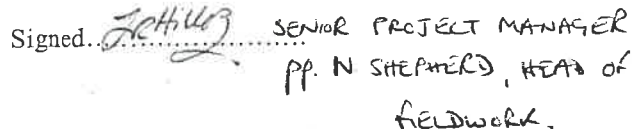 Signed.................... SENIOR PROJECT MANAGER
PP. N SHEPHERD, HEAD OF
FIELDWORK.